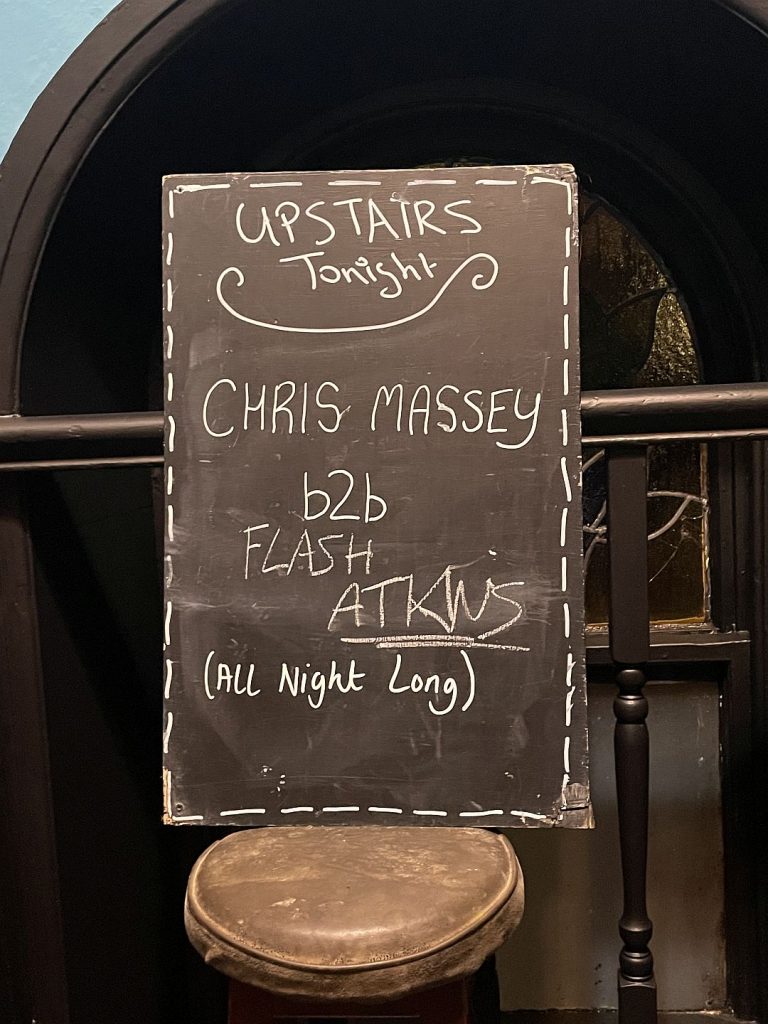 UPSTAIRS
Tonight
CHRIS MASSEY
b2b
FLASH
ATKINS
(All Night Long)